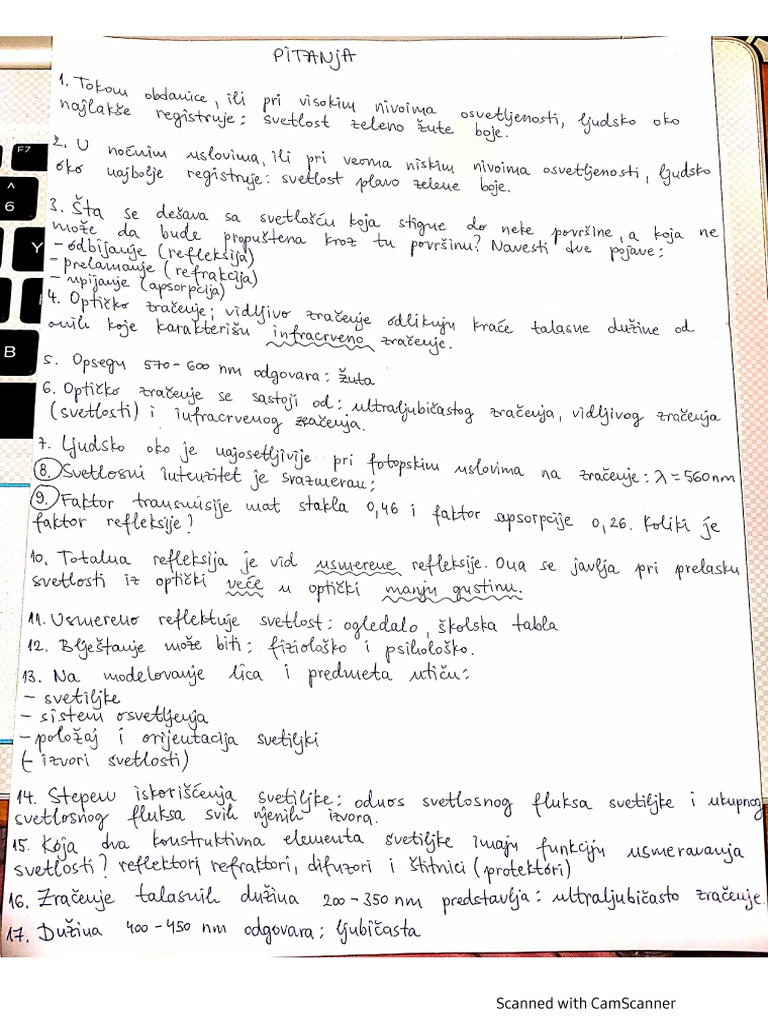 PITANJA
1. Tokom obdanice, ili pri visokim nivoima osvetljenosti, ljudsko oko
najlakše registruje: svetlost zeleno žute boje.
2. U noćnim uslovima, ili pri veoma niskim nivoima osvetljenosti, ljudsko
oko najbolje registruje: svetlost plavo zelene boje.
3. Šta se dešava sa svetlošću koja stigne do neke površine, a koja ne
može da bude propuštena kroz tu površinu? Navesti dve pojave:
- odbijanje (refleksija)
- prelamanje (refrakcija)
- upijanje (apsorpcija)
4. Optičko zračenje; vidljivo zračenje odlikuju kraće talasne dužine od
onih koje karakterišu infracrveno zračenje.
5. Opsegu 570-600 nm odgovara: žuta
6. Optičko zračenje se sastoji od: ultraljubičastog zračenja, vidljivog zračenja
(svetlosti) i infracrvenog zračenja.
7. Ljudsko oko je najosetljivije pri fotopskim uslovima na zračenje: λ = 560nm
8. Svetlosni intenzitet je srazmeran:
9. Faktor transmisije mat stakla 0,46 i faktor apsorpcije 0,26. Koliki je
faktor refleksije?
10. Totalna refleksija je vid usmerene refleksije. Ona se javlja pri prelasku
svetlosti iz optički veće u optički manju gustinu.
11. Usmereno reflektuje svetlost: ogledalo, školska tabla
12. Blještanje može biti: fiziološko i psihološko.
13. Na modelovanje lica i predmeta utiču:
- svetiljke
- sistem osvetljenja
- položaj i orijentacija svetiljki
(- izvori svetlosti)
14. Stepen iskorišćenja svetiljke: odnos svetlosnog fluksa svetiljke i ukupnog
svetlosnog fluksa svih njenih izvora.
15. Koja dva konstruktivna elementa svetiljke imaju funkciju usmeravanja
svetlosti? reflektori, refraktori, difuzori i štitnici (protektori)
16. Zračenje talasnih dužina 200-350 nm predstavlja: ultraljubičasto zračenje.
17. Dužina 400-450 nm odgovara: ljubičasta
F7
^
6
Y
B
Scanned with CamScanner